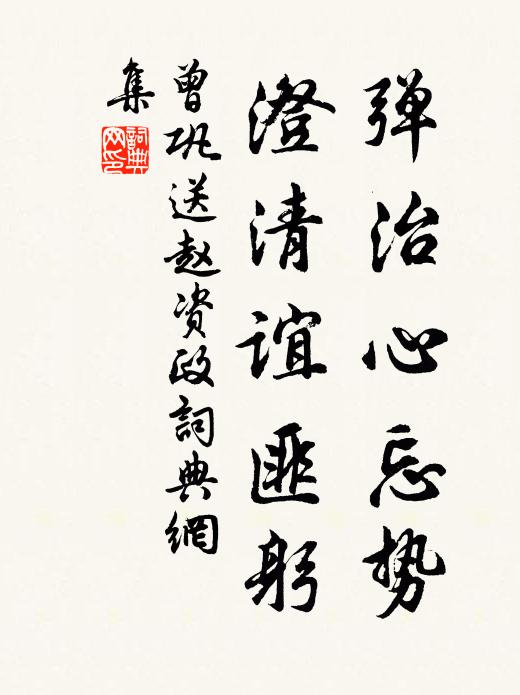 弹治心忘势
澄清谊匪躬
曾巩送赵资政詞典網
集
詞典
网印